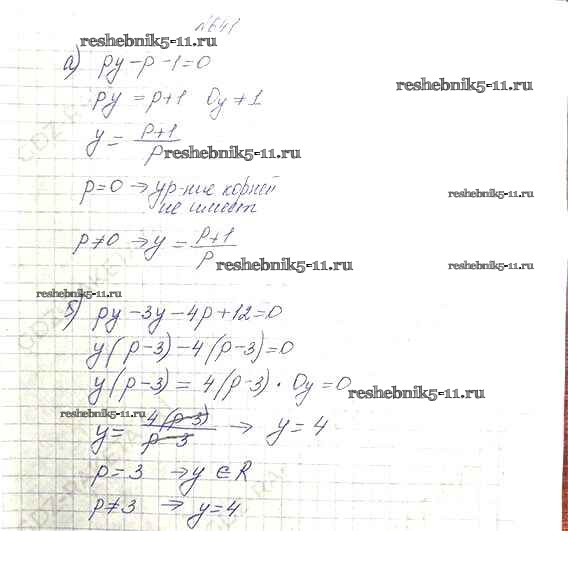 №641
reshebnik5-11.ru
а) py - p - 1 = 0
reshebnik5-11.ru
py = p+1 0y ≠ 1
y = p+1 / p
reshebnik5-11.ru
p=0 → ур-ние корней
не имеет
reshebnik5-11.ru
p≠0 → y = p+1 / p
reshebnik5-11.ru
reshebnik5-11.ru
reshebnik5-11.ru
б) py - 3y - 4p + 12 = 0
y(p-3) - 4(p-3) = 0
y(p-3) = 4(p-3) · 0y = 0
reshebnik5-11.ru
reshebnik5-11.ru
y = 4(p-3) / p-3 → y = 4
p = 3 → y ∈ R
p≠3 → y=4